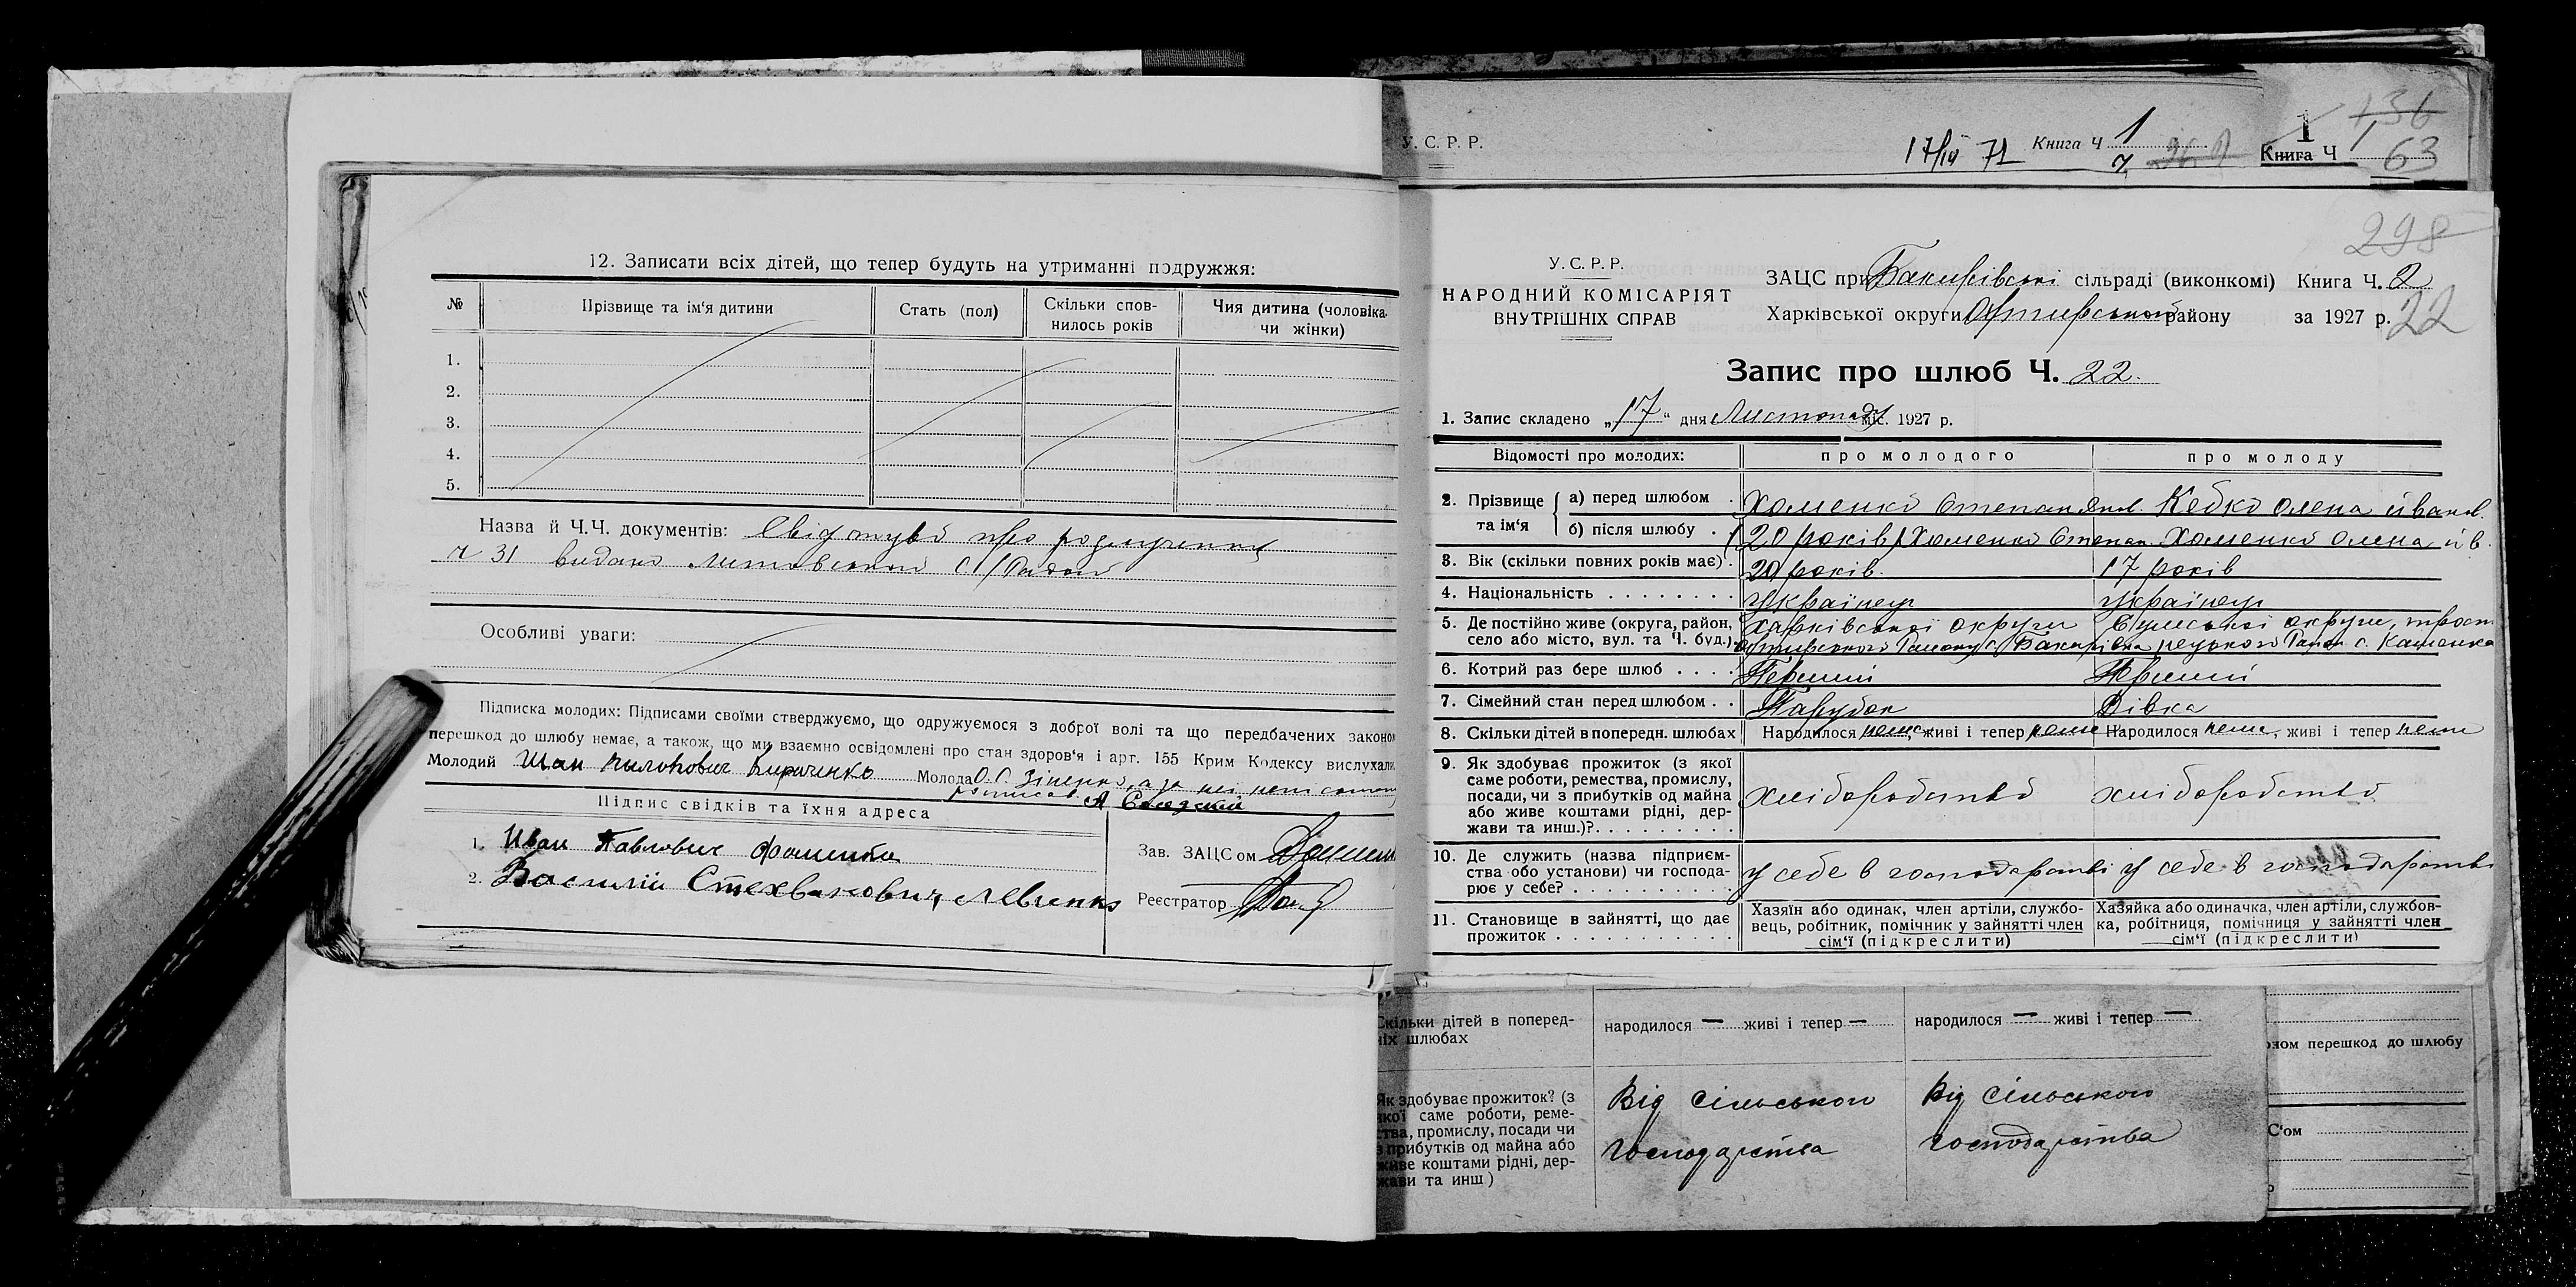 12. Записати всіх дітей, що тепер будуть на утриманні подружжя:
№ Прізвище та ім'я дитини Стать (пол) Скільки сповнилось років Чия дитина (чоловіка чи жінки)
1.
2.
3.
4.
5.
Назва й Ч.Ч. документів: про
ч 31 видано
Особливі уваги:
Підписка молодих: Підписами своїми стверджуємо, що одружуємося з доброї волі та що передбачених законом
перешкод до шлюбу немає, а також, що ми взаємно освідомлені про стан здоров'я і арт. 155 Крим Кодексу вислухали
Молодий Кириченко Молода О. С.
Підпис свідків та їхня адреса
1. Иван Павлович Фоменко
2. Василій Левченко
Зав. ЗАЦСом
Реєстратор
У. С. Р. Р.
17/IV 71 Книга Ч 1
Книга Ч 1
136
63
298
У. С. Р. Р.
НАРОДНИЙ КОМІСАРІЯТ
ВНУТРІШНІХ СПРАВ
ЗАЦС при Бакирівські сільраді (виконкомі) Книга Ч. 2
Харківської округи Охтирського району за 1927 р. 22
Запис про шлюб Ч. 22.
1. Запис складено „17" дня Листопаду міс. 1927 р.
Відомості про молодих: про молодого про молоду
2. Прізвище та ім'я а) перед шлюбом Хоменко Степан Кебко Олена Іванов.
б) після шлюбу 20 років Хоменко Степан Хоменко Олена Ів.
3. Вік (скільки повних років має) 20 років. 17 років
4. Національність Українец Українец
5. Де постійно живе (округа, район, Харківської округи Сумської округи, трост
село або місто, вул. та Ч. буд.) Охтирського Району с. Бакирівка нецького Район с. Каменка
6. Котрий раз бере шлюб Перший Перший
7. Сімейний стан перед шлюбом Парубок Дівка
8. Скільки дітей в попередн. шлюбах Народилося нема, живі і тепер нема Народилося нема, живі і тепер нема
9. Як здобуває прожиток (з якої
саме роботи, ремества, промислу,
посади, чи з прибутків од майна
або живе коштами рідні, держави та инш.)? хліборобство хліборобство
10. Де служить (назва підприємства або установи) чи господарює у себе? у себе в господарстві у себе в господарстві
11. Становище в зайнятті, що дає прожиток
Хазяїн або одинак, член артіли, службовець, робітник, помічник у зайнятті член сім'ї (підкреслити)
Хазяйка або одиначка, член артіли, службовка, робітниця, помічниця у зайнятті член сім'ї (підкреслити)
Скільки дітей в попередніх шлюбах народилося — живі і тепер — народилося — живі і тепер —
Як здобуває прожиток? (з
якої саме роботи, ремества, промислу, посади чи
з прибутків од майна або
живе коштами рідні, держави та инш)
Від сільського господарства
Від сільського господарства
ном перешкод до шлюбу
С'ом